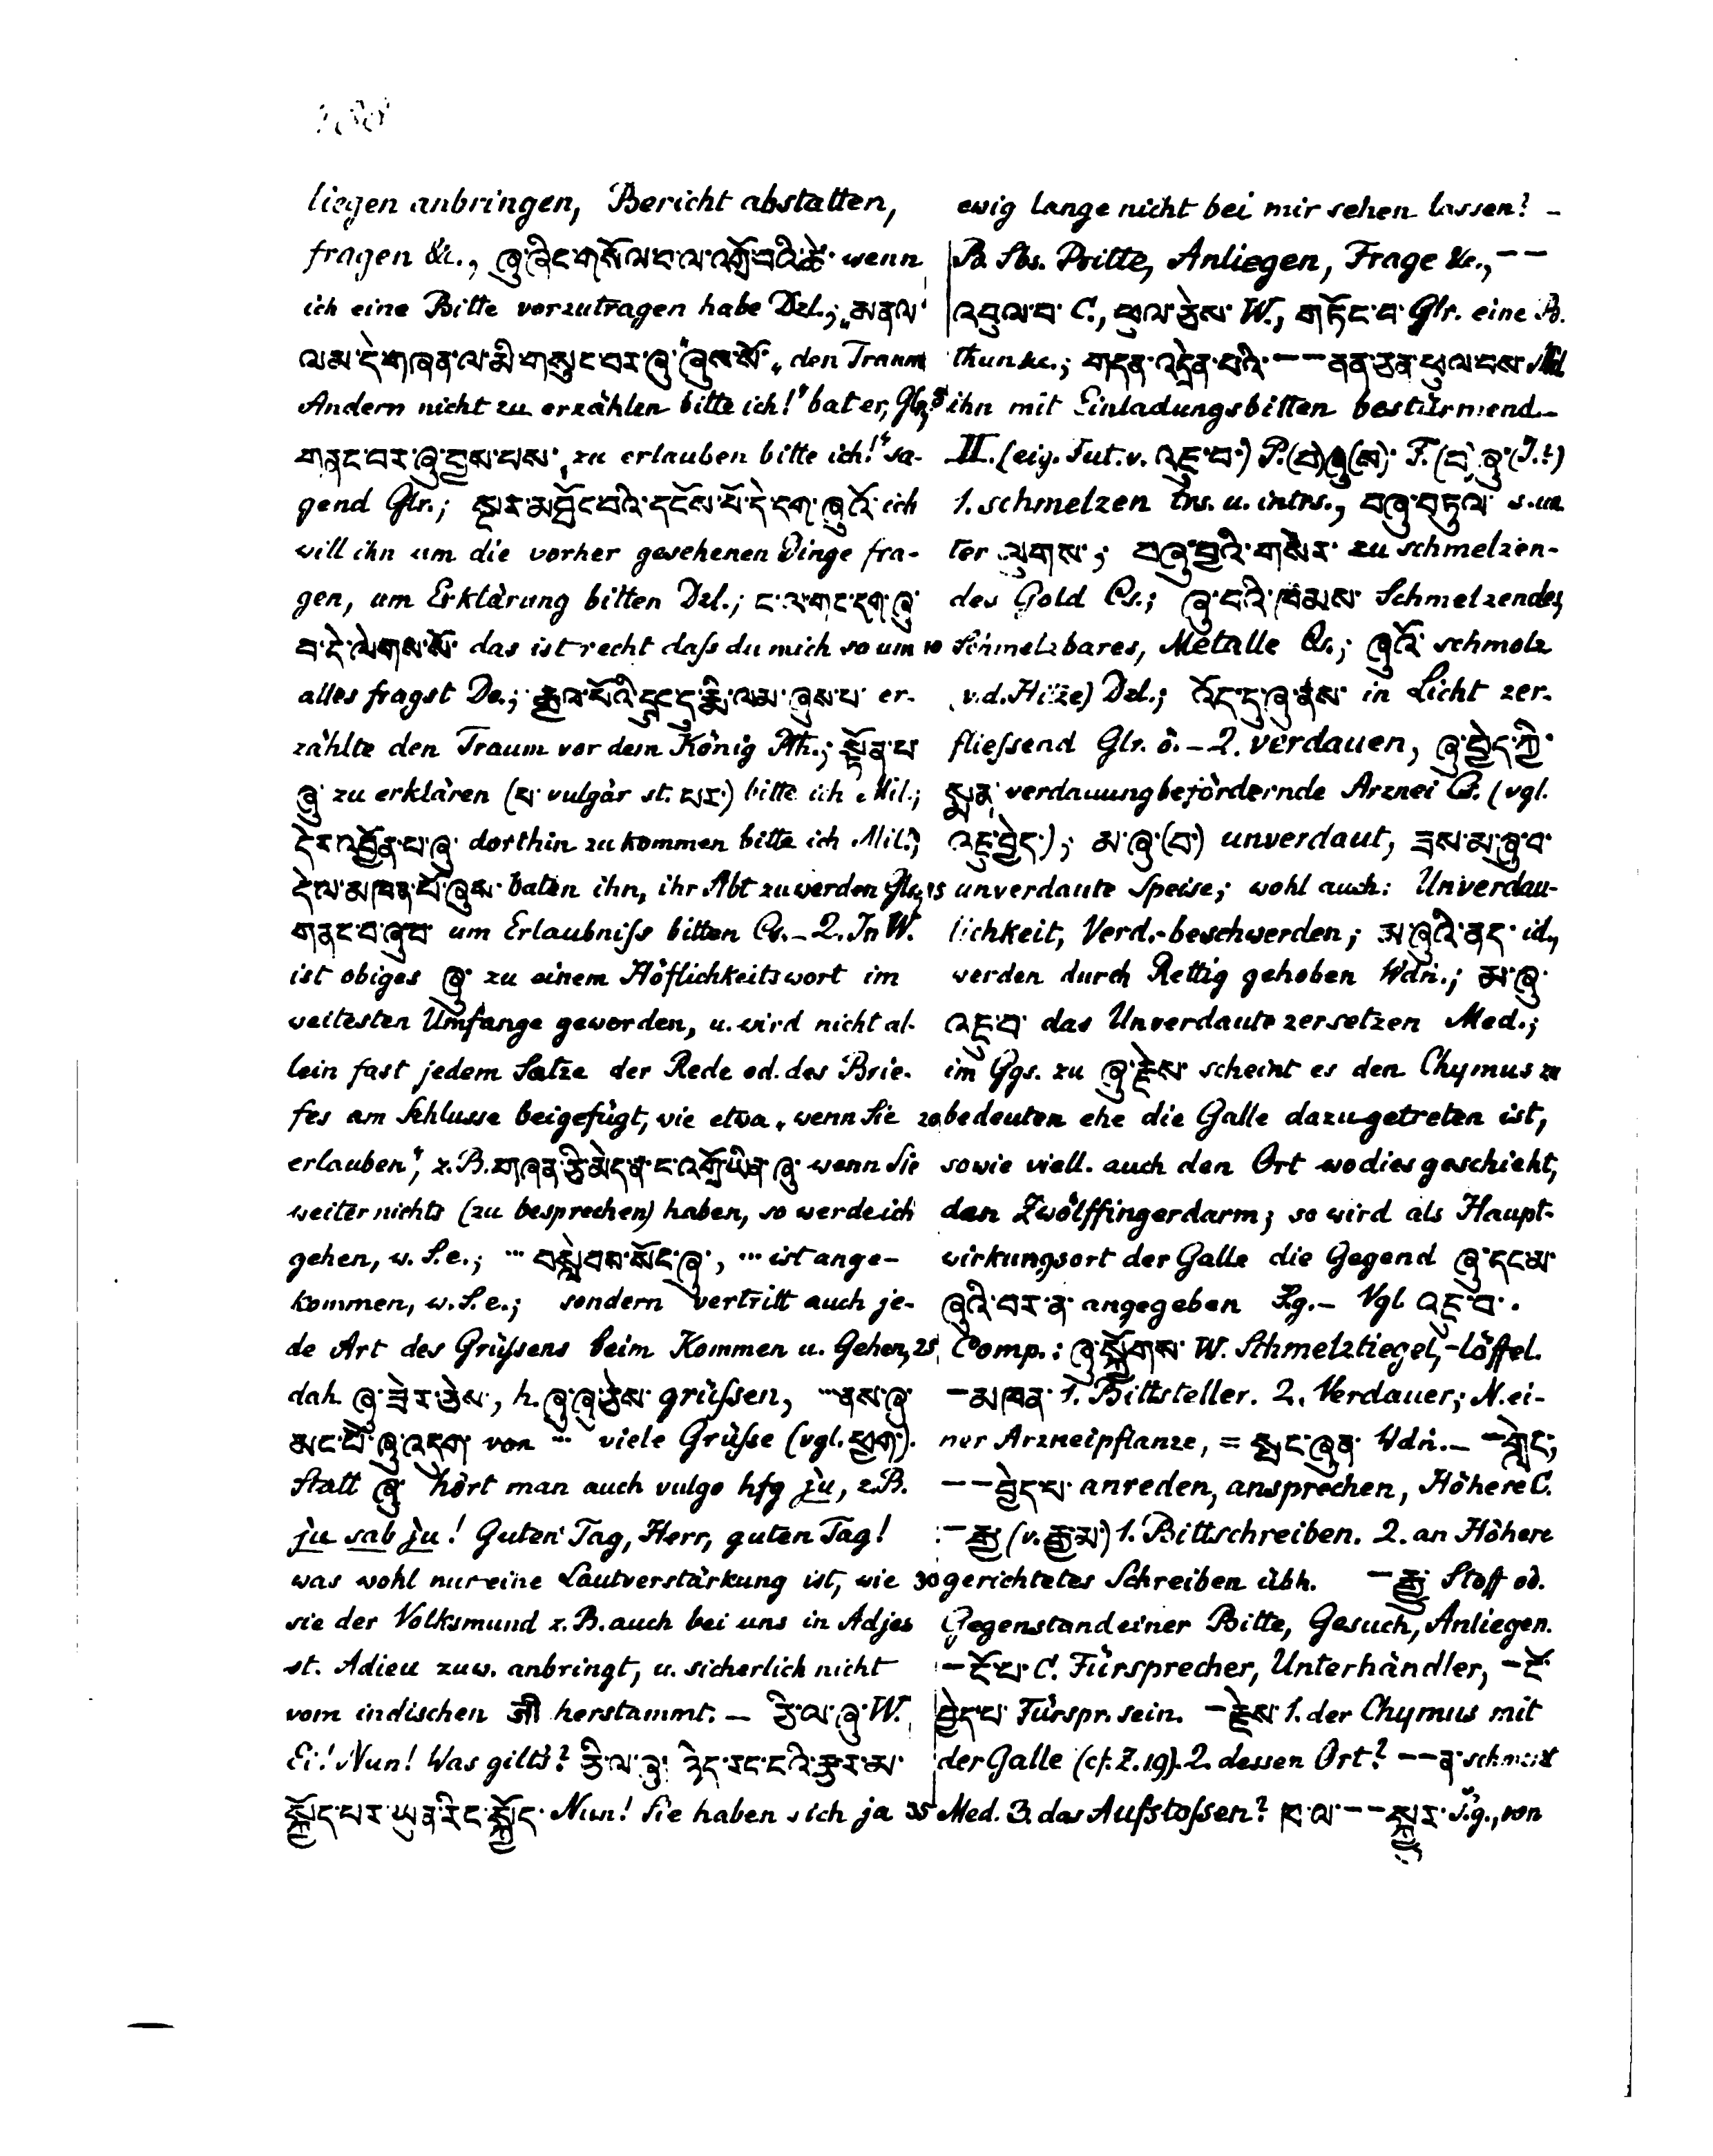 liegen anbringen, Bericht abstatten,
fragen &c., ཞུ་ཞིང་གསོལ་བ་ལ་འགྲོ་བའི་ཚེ་ wenn
ich eine Bitte vorzutragen habe Dzl.; „མནལ་
ལམ་དེ་གཞན་ལ་མི་གསུང་བར་ཞུ་“ཞུས་སོ་ „den Traum
Andern nicht zu erzählen bitte ich!“ bat er, Glr.;
གནང་བར་ཞུ་བྱས་པས་ „zu erlauben bitte ich!“ sa-
gend Glr.; སྔར་མཐོང་བའི་དངོས་པོ་དེ་དག་ཞུའོ་ ich
will ihn um die vorher gesehenen Dinge fra-
gen, um Erklärung bitten Dzl.; ང་ལ་གང་དག་ཞུ་
བ་དེ་ལེགས་སོ་ das ist recht daſs du mich so um
alles fragst Do.; རྒྱལ་པོའི་དྲུང་དུ་རྨི་ལམ་ཞུས་པ་ er-
zählte den Traum vor dem König Pth.; སྟོན་པ་
ཞུ་ zu erklären (པ་ vulgär st. པར་) bitte ich Mil.;
དེར་འབྱོན་པ་ཞུ་ dorthin zu kommen bitte ich Mil.;
དེ་ལ་མཁན་པོ་ཞུས་ baten ihn, ihr Abt zu werden Glr.;
གནང་བ་ཞུ་བ་ um Erlaubniſs bitten Cs. – 2. In W.
ist obiges ཞུ་ zu einem Höflichkeitswort im
weitesten Umfange geworden, u. wird nicht al-
lein fast jedem Satze der Rede od. des Brie-
fes am Schlusse beigefügt, wie etwa „wenn Sie
erlauben“, z.B. གཞན་ཅི་མེད་ན་ང་འགྲོ་ཡིན་ཞུ་ wenn Sie
weiter nichts (zu besprechen) haben, so werde ich
gehen, w. S. e.; ... བསླེབས་སོང་ཞུ་, ... ist ange-
kommen, w. S. e.; sondern vertritt auch je-
de Art des Grüſsens beim Kommen u. Gehen,
dah. ཞུ་ཟེར་ཅེས་, h. ཞུ་ཞུ་ཅེས་ grüſsen, ... ནས་ཞུ་
མང་པོ་ཞུ་འདུག་ von ... viele Grüſse (vgl. ཕྱག་).
Statt ཞུ་ hört man auch vulgo hfg ju, z.B.
ju sab ju! Guten Tag, Herr, guten Tag!
was wohl nur eine Lautverstärkung ist, wie
sie der Volksmund z.B. auch bei uns in Adjes
st. Adieu zuw. anbringt, u. sicherlich nicht
vom indischen जी herstammt. – ཅི་ལ་ཞུ་ W.
Ei! Nun! Was gilts? ཅི་ལ་ཞུ་ ཉེད་རང་ངའི་རྩར་མ་
སྐྱོད་པར་ཡུན་རིང་སྐྱོད་ Nun! Sie haben sich ja
ewig lange nicht bei mir sehen lassen? –
B. Sbs. Bitte, Anliegen, Frage &c., ––
འབུལ་བ་ C., ཕུལ་ཅེས་ W., གཏོང་བ་ Glr. eine B.
thun &c.; གདན་འདྲེན་པའི་ –– ནན་ཅན་ཕུལ་བས་
5 ihn mit Einladungsbitten bestürmend. –
II. (eig. Fut. v. འཇུ་བ་) P. (བ)ཞུ(ས)་ F. (བ)ཞུ་ (I.?)
1. schmelzen trs. u. intrs., བཞུ་བཏུལ་ s. un
ter ལུགས་; བཞུ་བྱའི་གསེར་ zu schmelzen-
des Gold Cs.; ཞུ་བའི་ཁམས་ Schmelzendes,
10 Schmelzbares, Metalle Cs.; ཞུའོ་ schmolz
(v. d. Hitze) Dzl.; འོད་དུ་ཞུ་ནས་ in Licht zer-
flieſsend Glr. ö. – 2. verdauen, ཞུ་བྱེད་ཀྱི་
སྨན་ verdauungbefördernde Arznei Cs. (vgl.
འཇུ་བྱེད་); མ་ཞུ་(བ་) unverdaut, ཟས་མ་ཞུ་བ་
15 unverdaute Speise; wohl auch: Unverdau-
lichkeit, Verd.-beschwerden; མ་ཞུའི་ནད་ id.,
werden durch Rettig gehoben Wdṅ.; མ་ཞུ་
འཇུ་བ་ das Unverdaute zersetzen Med.;
im Ggs. zu ཞུ་རྗེས་ scheint es den Chymus zu
20 bedeuten ehe die Galle dazugetreten ist,
sowie viell. auch den Ort wo dies geschieht,
den Zwölffingerdarm; so wird als Haupt-
wirkungsort der Galle die Gegend ཞུ་དང་མ་
ཞུའི་བར་ན་ angegeben S.g. – Vgl འཇུ་བ་.
25 Comp.: ཞུ་སྐྱོགས་ W. Schmelztiegel, -löffel.
–མཁན་ 1. Bittsteller. 2. Verdauer; N. ei-
ner Arzneipflanze, = སྤང་ཞུན་ Wdṅ. – –གླེང་,
––བྱེད་པ་ anreden, ansprechen, Höhere C.
–རྒྱ་ (v. རྒྱ་མ་) 1. Bittschreiben. 2. an Höhere
30 gerichtetes Schreiben übh. –རྒྱུ་ Stoff od.
Gegenstand einer Bitte, Gesuch, Anliegen.
–ངོ་པ་ C. Fürsprecher, Unterhändler, –ངོ་
བྱེད་པ་ Fürspr. sein. –རྗེས་ 1. der Chymus mit
der Galle (cf. Z. 19). 2. dessen Ort? ––ན་ schmerzt
35 Med. 3. das Aufstoſsen? ཁ་ལ་––སྐྱུར་ S.g., von